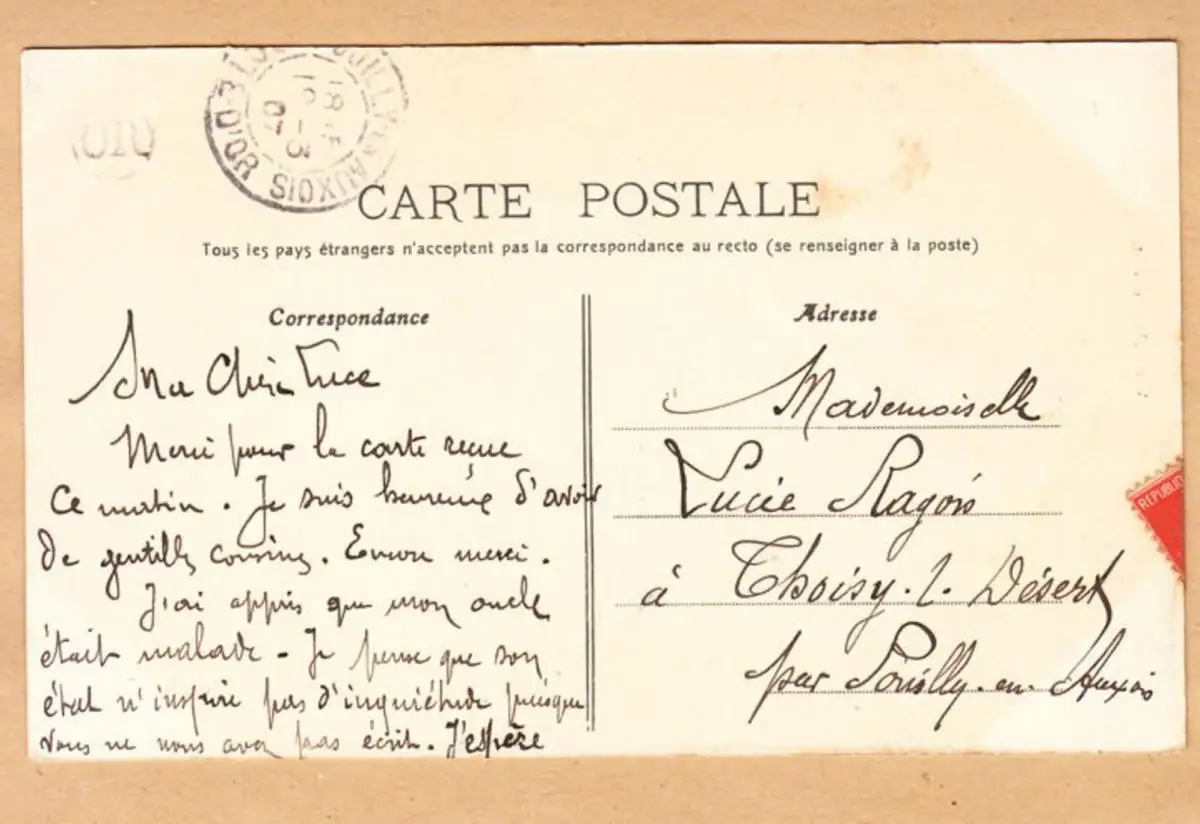 POUILLY-EN-AUXOIS
D'OR
18
3
07
OIO
CARTE POSTALE
Tous les pays étrangers n'acceptent pas la correspondance au recto (se renseigner à la poste)
Correspondance
Ma Chère Luce
Merci pour la carte reçue
Ce matin. Je suis heureuse d'avoir
de gentilles cousines. Encore merci.
J'ai appris que mon oncle
était malade - Je pense que son
état n'inspire pas d'inquiétude puisque
vous ne nous avez pas écrit. J'espère
Adresse
Mademoiselle
Lucie Ragois
à Thoisy-l-Désert
par Pouilly-en-Auxois
REPUBLIQ